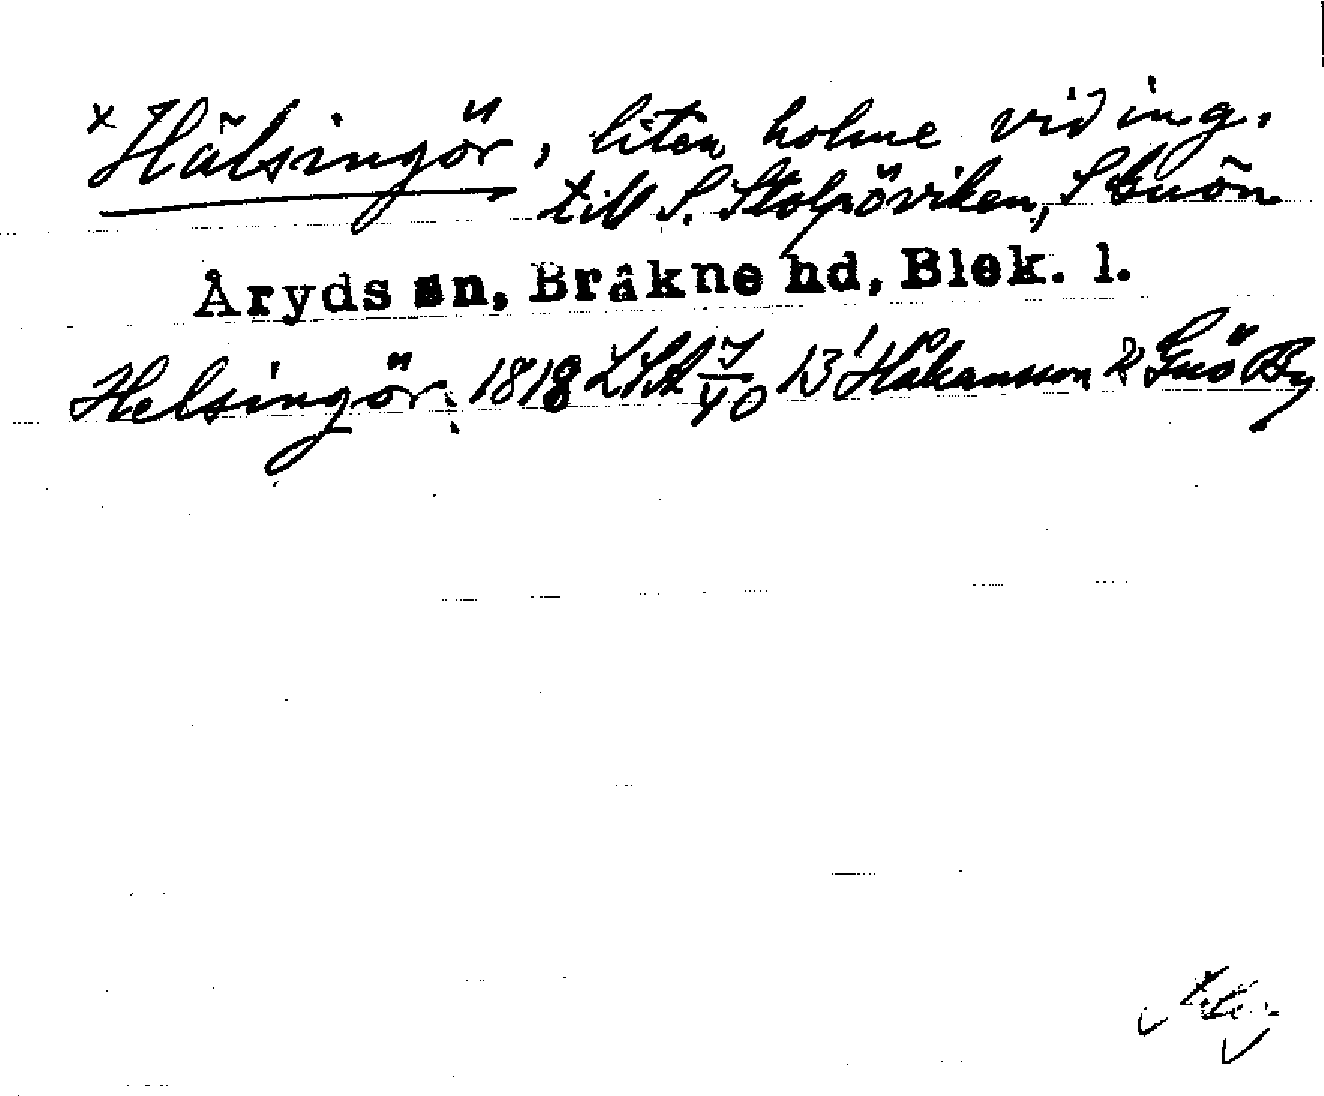 x Hälsingör, liten holme vid ing.
till S. Stolpöviken, S Gnön
Åryds sn, Bräkne hd, Blek. l.
Helsingör: 1818 LSA 7/40 13' Håkansson & Gnö By